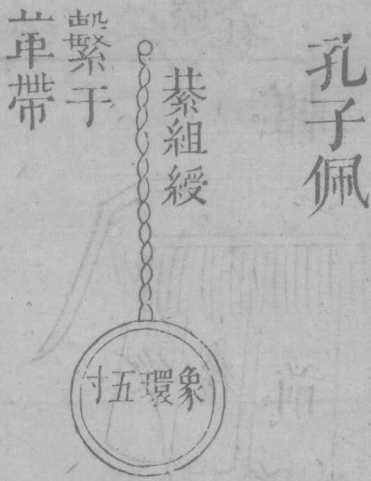 孔子佩
綦組綬
繫于
革帶
象環五寸